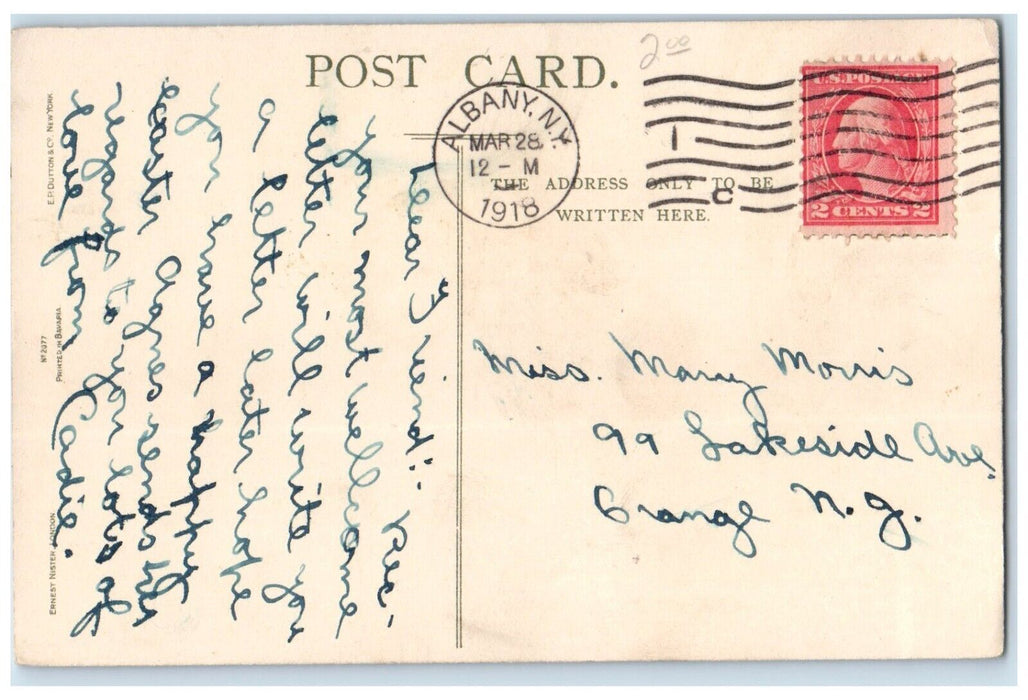 POST CARD.
2.00
ALBANY, N.Y.
MAR 28
12 - M
1918
1
C
U.S. POSTAGE
2 CENTS 2
THE ADDRESS ONLY TO BE
WRITTEN HERE.
Dear Friend:- Rec.
your most wellcome
letter will write you
a letter later hope
you have a happy
easter Agnes sends her
regards to you lots of
love from Cadie.
Miss. Mary Morris
99 Lakeside Ave.
Orange N.J.
ERNEST NISTER, LONDON
Nº 2977
PRINTED IN BAVARIA
E.P. DUTTON & CO. NEW YORK